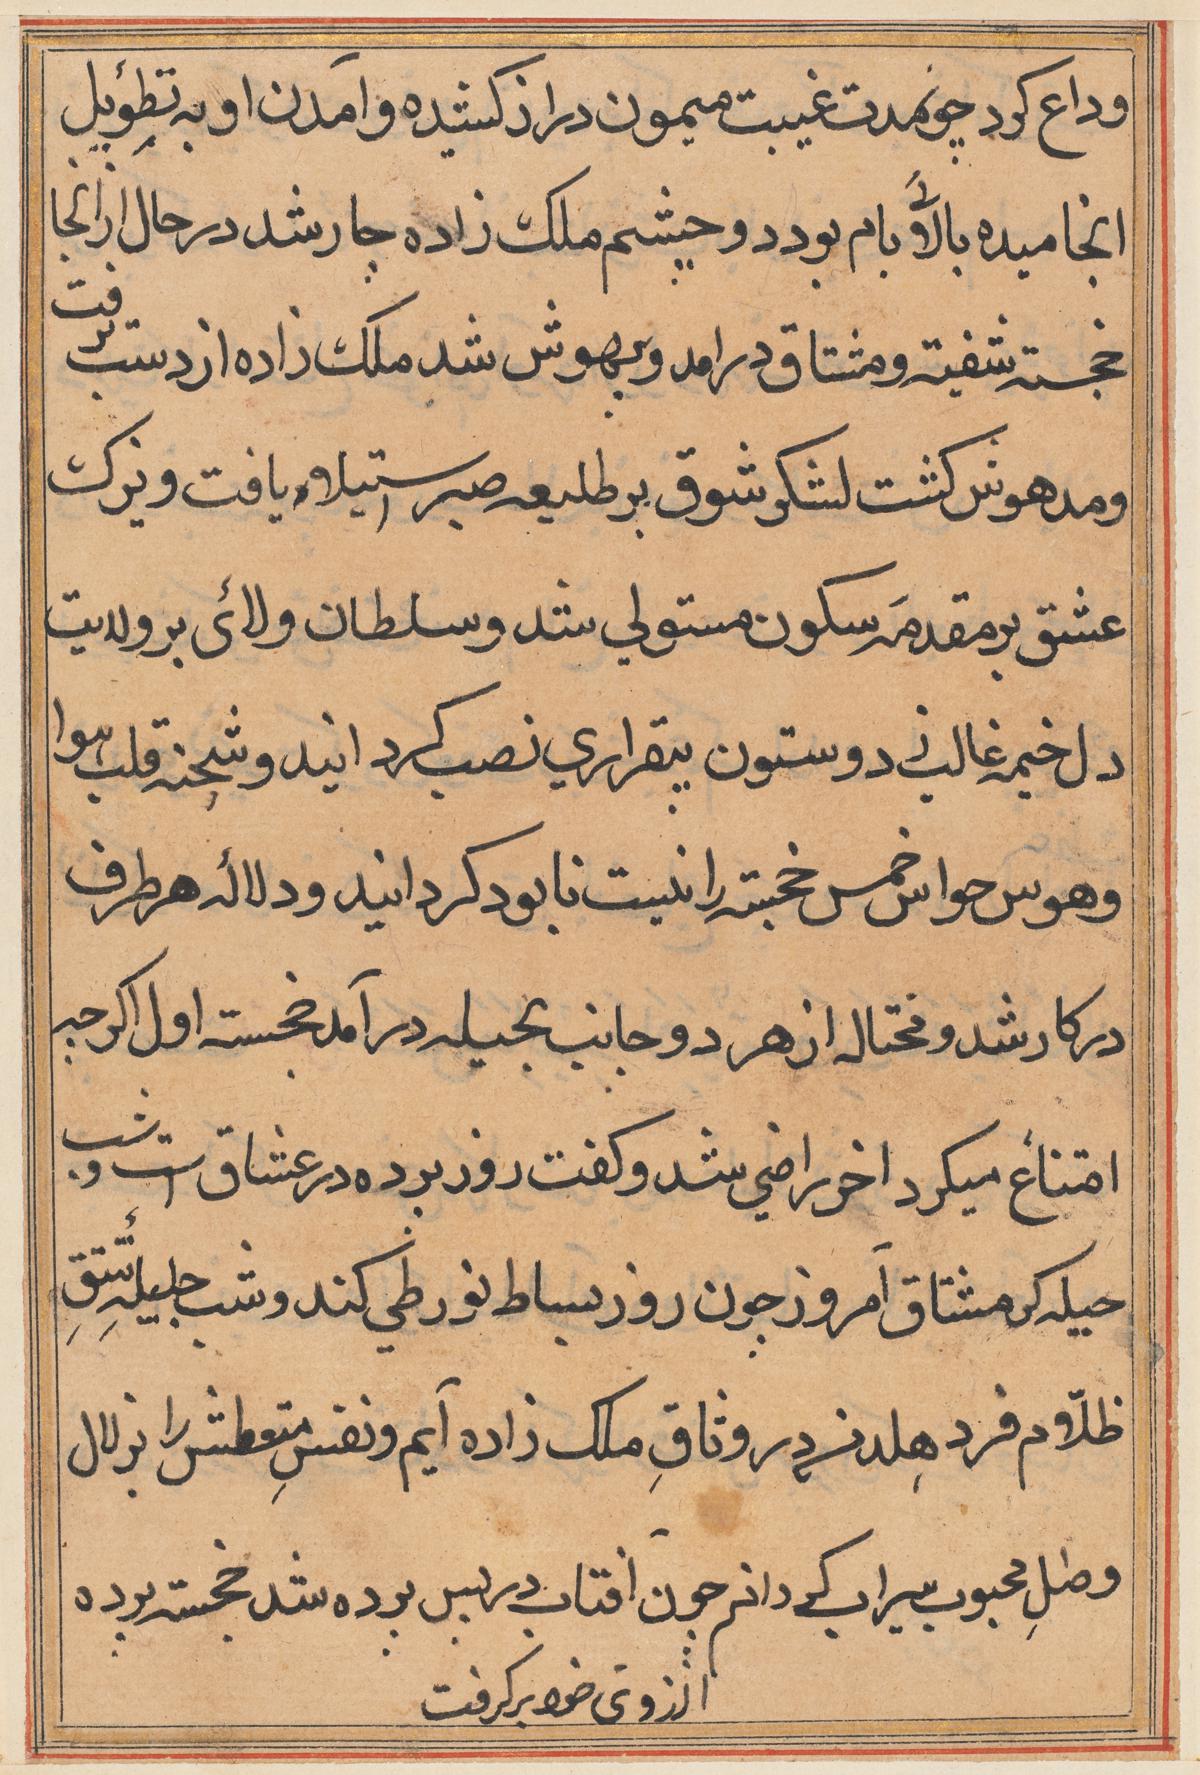 وداع کرد چون مدت غیبت میمون دراز کشیده و آمدن او به تطویل
انجامیده بالاء بام بود دو چشم ملک زاده چار شد در حال از آنجا
خجسته شفیته و مشتاق درامد و بیهوش شد ملک زاده از دست برفت
و مدهوش کشت لشکر شوق بر طلیعه صبر استیلاء یافت و یزک
عشق بر مقدمهٔ سکون مستولي شد و سلطان ولائ بر ولایت
دل خیمه غالبی دوستون بیقراري نصب کردانید و شحنه قلب هوا
و هوس حواس خمس خجسته را نیست نابود کردانید و دلاله هر طرف
در کار شد و محتاله از هر دو جانب بحیله درآمد خجسته اول اکرچه
امتناع میکرد اخر راضي شد و کفت روز برده در عشاق است و شب
حیله کر مشتاق امروز چون روز بساط نور طي کند و شب
ظلام فرو هلد در وثاقِ ملک زاده آیم و نفسِ متعطش را بزلال
وصلِ محبوب سیراب دانم چون افتاب در پس برده شد خجسته برده
از روی خود بر کرفت